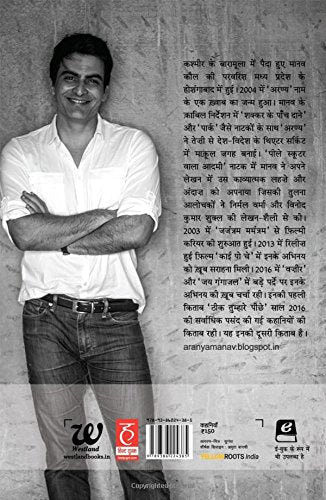 कश्मीर के बारामूला में पैदा हुए मानव
कौल की परवरिश मध्य प्रदेश के
होशंगाबाद में हुई। 2004 में 'अरण्य' नाम
के एक ख़्वाब का जन्म हुआ। मानव के
क़ाबिल निर्देशन में 'शक्कर के पाँच दाने'
और 'पार्क' जैसे नाटकों के साथ 'अरण्य'
ने तेजी से देश-विदेश के थिएटर सर्किट
में माक़ूल जगह बनाई। 'पीले स्कूटर
वाला आदमी' नाटक में मानव ने अपने
लेखन में उस काव्यात्मक लहजे और
अंदाज़ को अपनाया जिसकी तुलना
आलोचकों ने निर्मल वर्मा और विनोद
कुमार शुक्ल की लेखन-शैली से की।
2003 में 'जजंत्रम ममंत्रम' से फ़िल्मी
करियर की शुरुआत हुई। 2013 में रिलीज़
हुई फ़िल्म 'काई पो चे' में इनके अभिनय
को ख़ूब सराहना मिली। 2016 में 'वज़ीर'
और 'जय गंगाजल' में बड़े पर्दे पर इनके
अभिनय की ख़ूब चर्चा रही। इनकी पहली
किताब 'ठीक तुम्हारे पीछे' साल 2016
की सर्वाधिक पसंद की गई कहानियों की
किताब रही। यह इनकी दूसरी किताब है।
aranyamanav.blogspot.in
w
Westland
westlandbooks.in
हिन्द युग्म
कहानियाँ
₹150
YELLOWROOTS.India
e
ई-बुक के रूप में
भी उपलब्ध है
Copyrighted Material